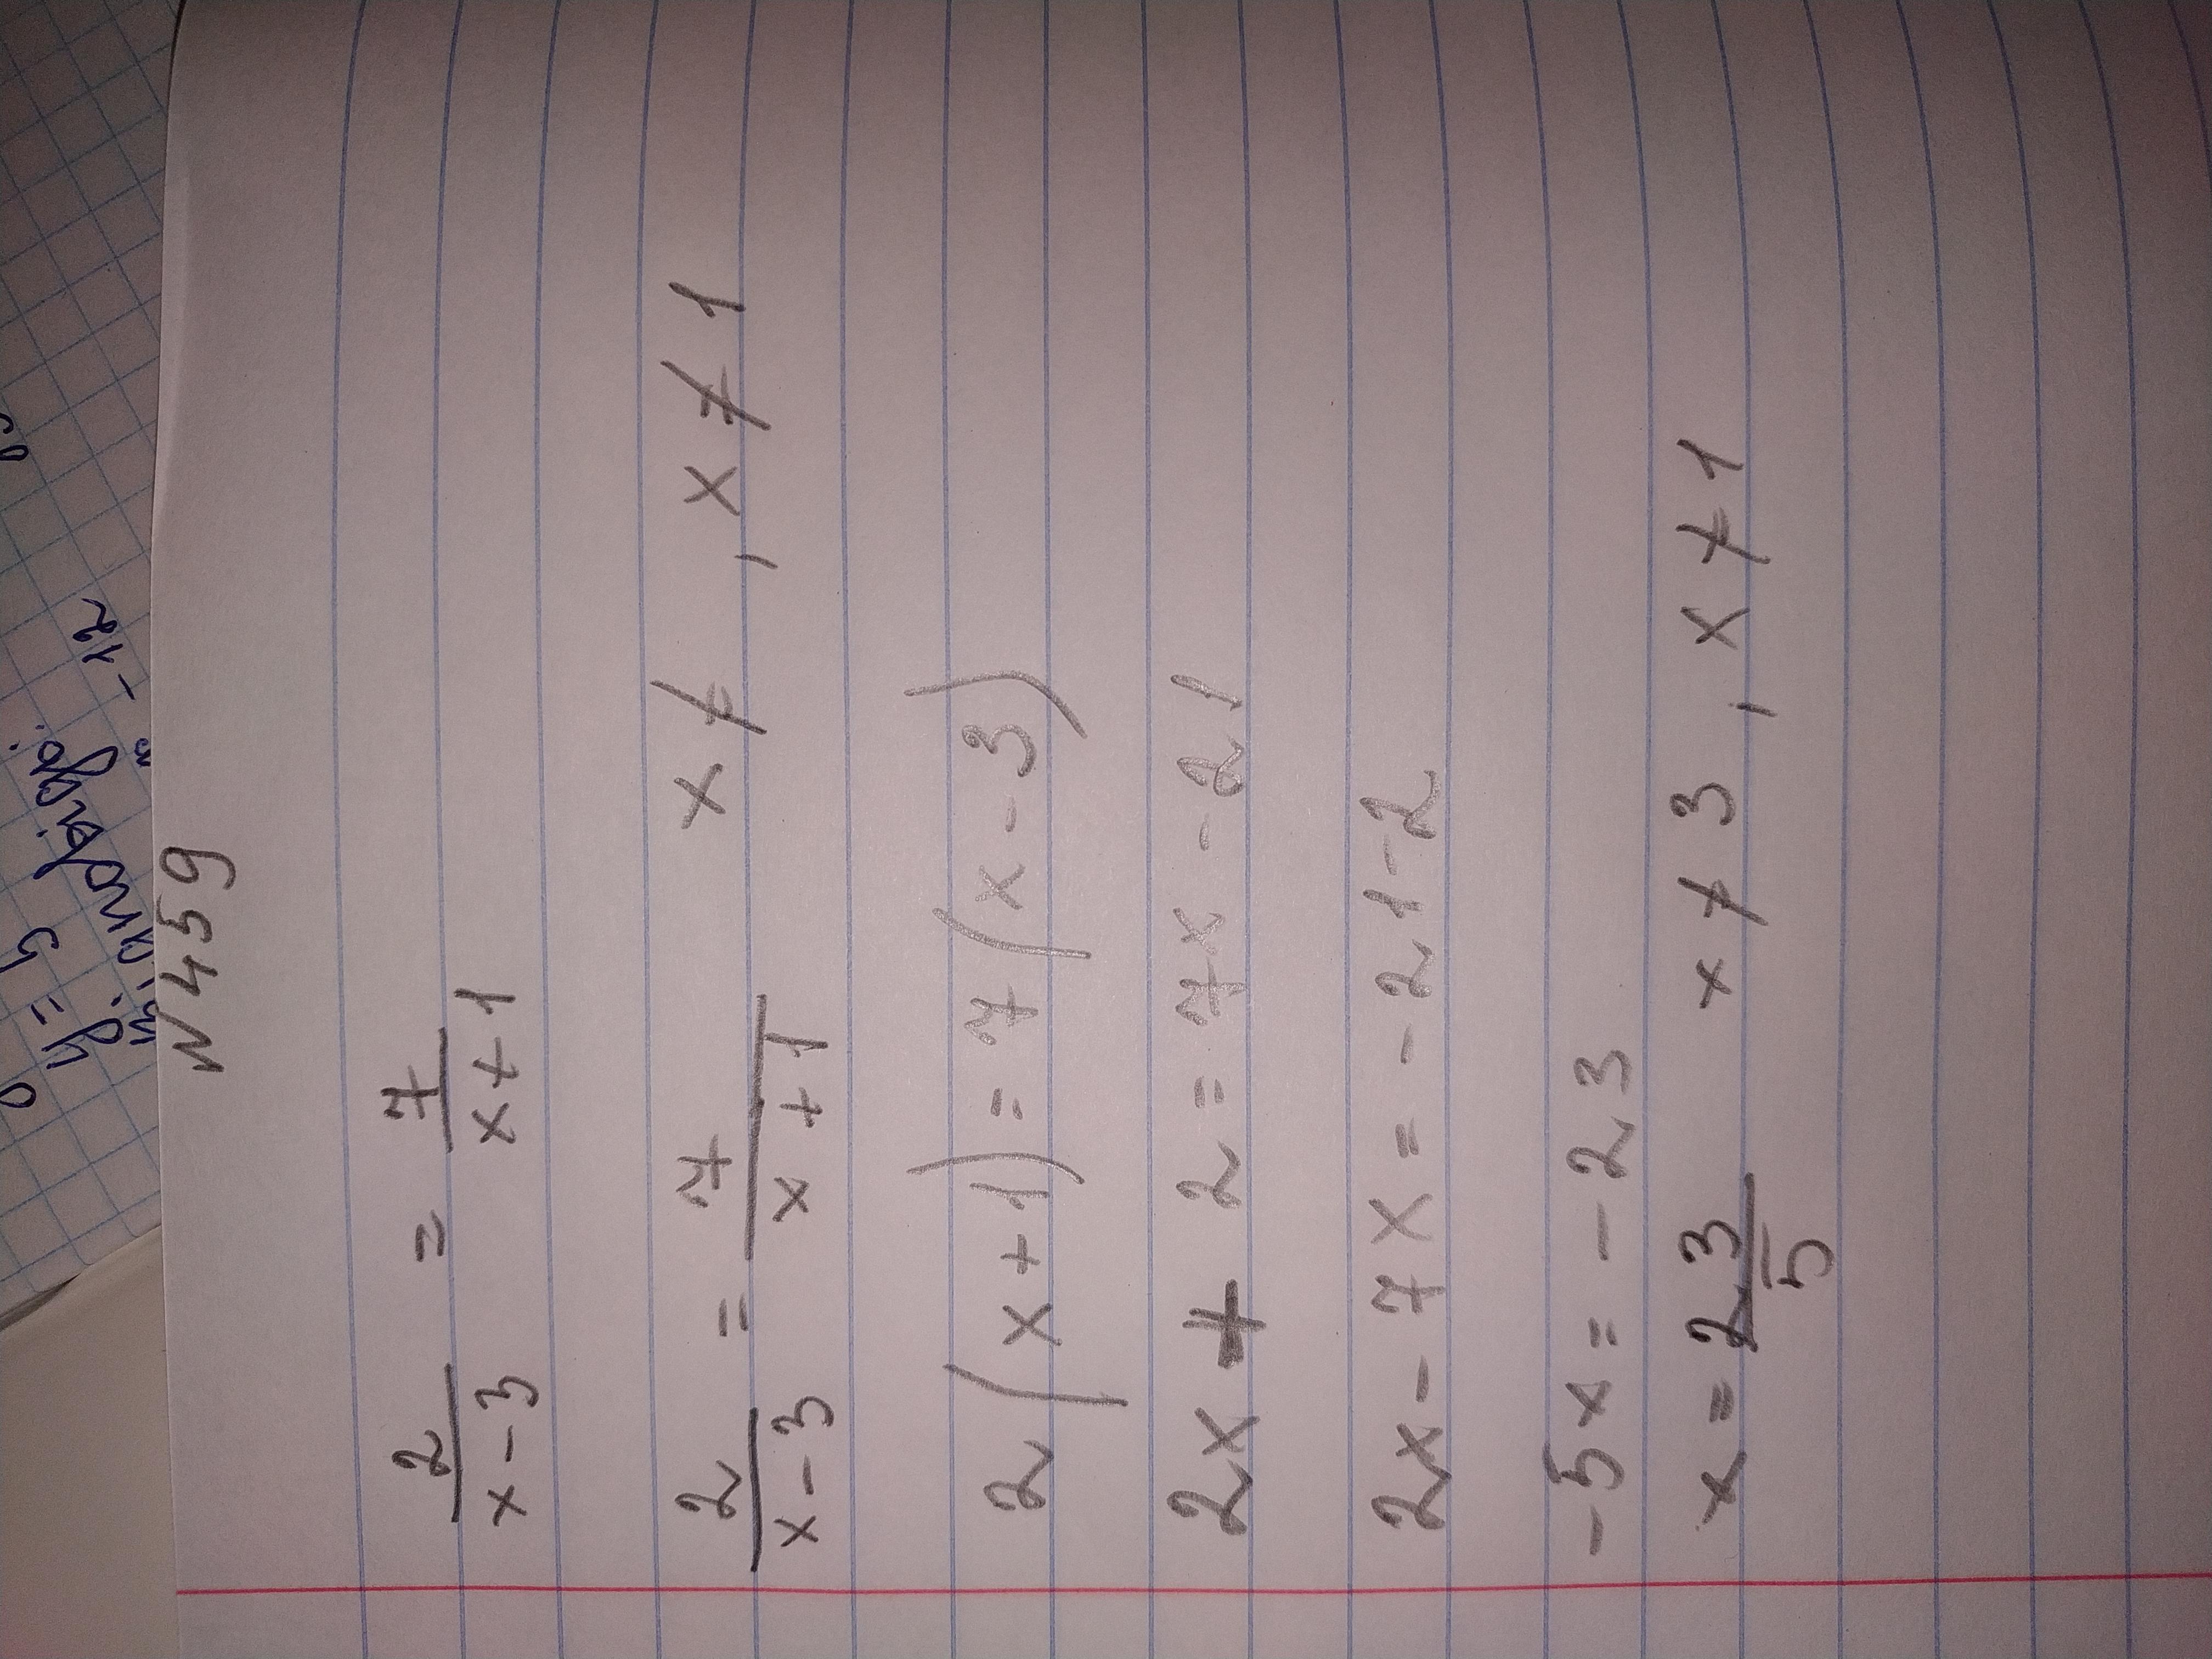 N459
2/(x-3) = 7/(x+1)
2/(x-3) = 7/(x+1) x ≠ , x ≠ 1
2(x+1) = 7(x-3)
2x + 2 = 7x - 21
2x - 7x = -21-2
-5x = -23
x = 23/5 x ≠ 3, x ≠ 1
y = 5
- 12